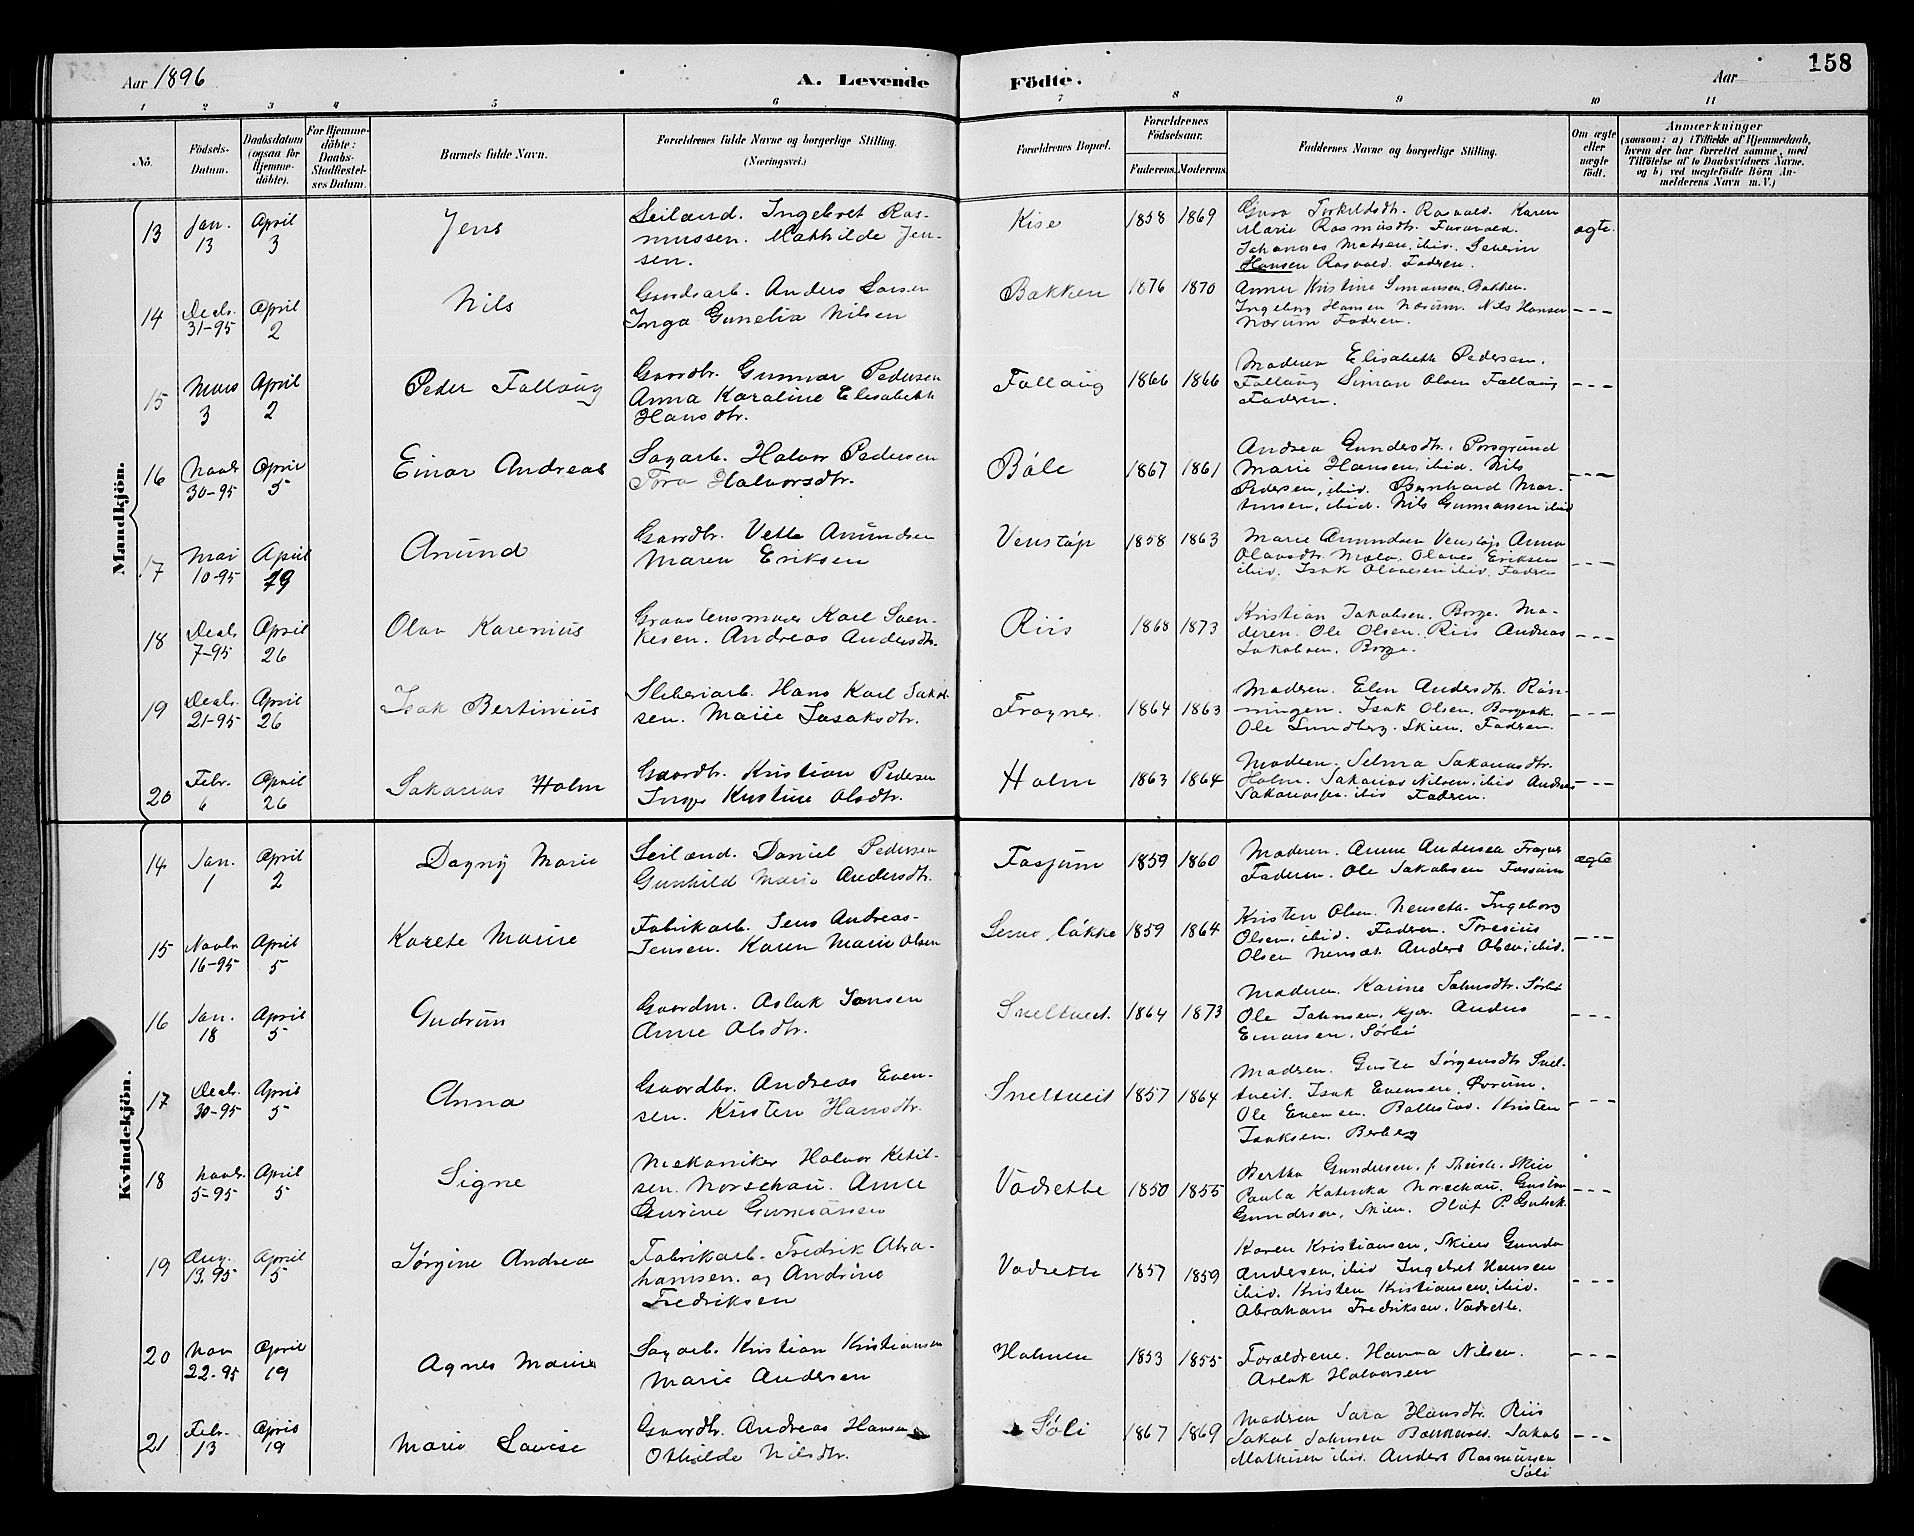 158
Aar 1896 A. Levende Födte. Aar
1 2 3 4 5 6 7 8 9 10 11
No.
Födsels-Datum.
Daabsdatum (ogsaa for Hjemme-döbte).
For Hjemme-döbte: Daabs-Stadfæstel-ses Datum.
Barnets fulde Navn.
Forældrenes fulde Navne og borgerlige Stilling.
(Næringsvei.)
Forældrenes Bopæl.
Forældrenes Födselsaar.
Faderens. Moderens.
Faddernes Navne og borgerlige Stilling.
Om ægte eller uægte födt.
Anmærkninger
(saasom: a) i Tilfælde af Hjemmedaab,
hvem der har forrettet samme, med
Tilföielse af to Daabsvidners Navne,
og b) ved uægtefödte Börn An-
melderens Navn m. V.)
Mandkjön.
13 Jan. 13 April 3 Jens
Seilænd. Ingebret Ras-
mussen. Mathilde Jen-
sen.
Kise 1858 1869
Torkildsdt. Rasvald. Karen
Marie Rasmusdt.
Johannes Madsen, ibid. Severin
Hansen Rasvald. Faderen.
ægte.
14 Decbr. 31-95 April 2 Nils
Gaardsarb. Anders Larsen
Inga Gunelia Nilsen
Bakken 1876 1870
Anne Kristine Simonsen, Bakken.
Ingeborg Hansen Nærum. Nils Hansen
Nærum Faderen.
---
15 Mars 3 April 2 Peder Fallaug
Gaardbr. Gunnar Pedersen
Anna Karoline Elisabeth
Hansdtr.
Fallaug 1866 1866
Moderen Elisabeth Pedersen.
Fallaug Simon Olsen Fallaug
Faderen.
---
16 Novbr 30-95 April 5 Einar Andreas
Sagarb. Halvor Pedersen
Tora Halvorsdtr.
Böle 1867 1861
Andrea Gundersdtr. Porsgrund
Marie Hansen, ibid. Nils
Pedersen, ibid. Bernhard Mar-
tinsen, ibid. Nils Gunnarsen ibid
---
17 Mai 10-95 April 19 Anund
Gaardbr. Vetle Anundsen
Maren Eriksen
Venstøp 1858 1863
Marie Amundsen Venstøp Anna
Olavsdtr. Mæla. Olaves Eriksen
ibid. Isak Olavesen ibid. Fader
---
18 Decbr 7-95 April 26 Olav Karenius
Graastensmurer Karl Sven-
kesen. Andrea Andersdtr.
Riis 1868 1873
Kristian Jakobsen. Borge. Mo-
deren. Ole Olsen. Riis Andreas
Jakobsen. Borge.
---
19 Decbr. 21-95 April 26 Isak Bertinius
Sliberiarb. Hans Karl Jakob
sen. Marie Isaksdtr.
Frogner 1864 1863
Moderen. Elen Andersdtr. Røn-
ningen. Isak Olsen.
Ole Lundberg. Skien. Faderen.
---
20 Febr. 6 April 26 Sakarias Holm
Gaardbr. Kristian Pedersen
Inger Kristine Olsdtr.
Holm 1863 1864
Moderen. Selma Sakariasdtr.
Holm. Sakarias Nilsen, ibid Andreas
Sakariassen ibid Faderen.
---
Kvindekjön.
14 Jan. 1 April 2 Dagny Marie
Seilænd. Daniel Pedersen
Gunhild Marie Andersdtr.
Fossum 1859 1860
Moderen. Anne Andersen Frogner
Faderen. Ole Jakobsen Fossum
ægte
15 Novbr 16-95 April 5 Karete Marie
Fabrikarb. Jens Andreas-
Jensen. Karen Marie Olsen
Løkke 1859 1864
Kristen Olsen. Nenset. Ingeborg
Olsen, ibid. Faderen.
Olsen Nenset. Anders Olsen, ibid.
---
16 Jan. 18 April 5 Gudrun
Gaardm. Aslak Jansen
Anne Olsdtr.
Sneltved. 1864 1873
Moderen. Karine Johnsdtr. Sørbö
Ole Johnsen, Kjær. Anders
Einarsen. Sørbö
---
17 Decbr. 30-95 April 5 Anna
Gaardbr. Andreas Even-
sen. Kirsten Hansdtr.
Sneltveit 1857 1864
Moderen. Gusta Jørgensdtr Snel-
tveit. Isak Evensen
Ole Evensen. Ballestad. Kristen
Isaksen. Berberg
---
18 Novbr. 5-95 April 5 Signe
Mekaniker Halvor Ketil-
sen. Norschau. Anne
Gurine Gunnarsen
Vadrette 1850 1855
Bertha Gundersen, f. Theisle. Skien
Paula Katinka Norschau. Gustav
Gundersen, Skien. Olaf P.
---
19 Aug. 13.95 April 5 Jørgine Andrea
Fabrikarb. Fredrik Abra-
hamsen. og Andrine
Fredriksen
Vadrette 1857 1859
Karen Kristiansen, Skien Gunda
Andersen, ibid Ingebret Hansen
ibid. Kristen Kristiansen, ibid.
Abraham Fredriksen. Vadrette.
---
20 Nov 22-95 April 19 Agnes Marie
Sagarb. Kristian Kristiansen
Marie Andersen
Holmen 1853 1855
Forældrene. Hanna Nilsen.
Aslak Halvorsen
---
21 Febr. 13 April 19 Marie Lovise
Gaardbr. Andreas Hansen
Othilde Nilsdtr.
Søli 1867 1869
Moderen Sara Hansdtr. Riis
Jakob Johnsen Bakkerud. Jakob
Mathisen ibid. Anders Rasmussen
Søli
---